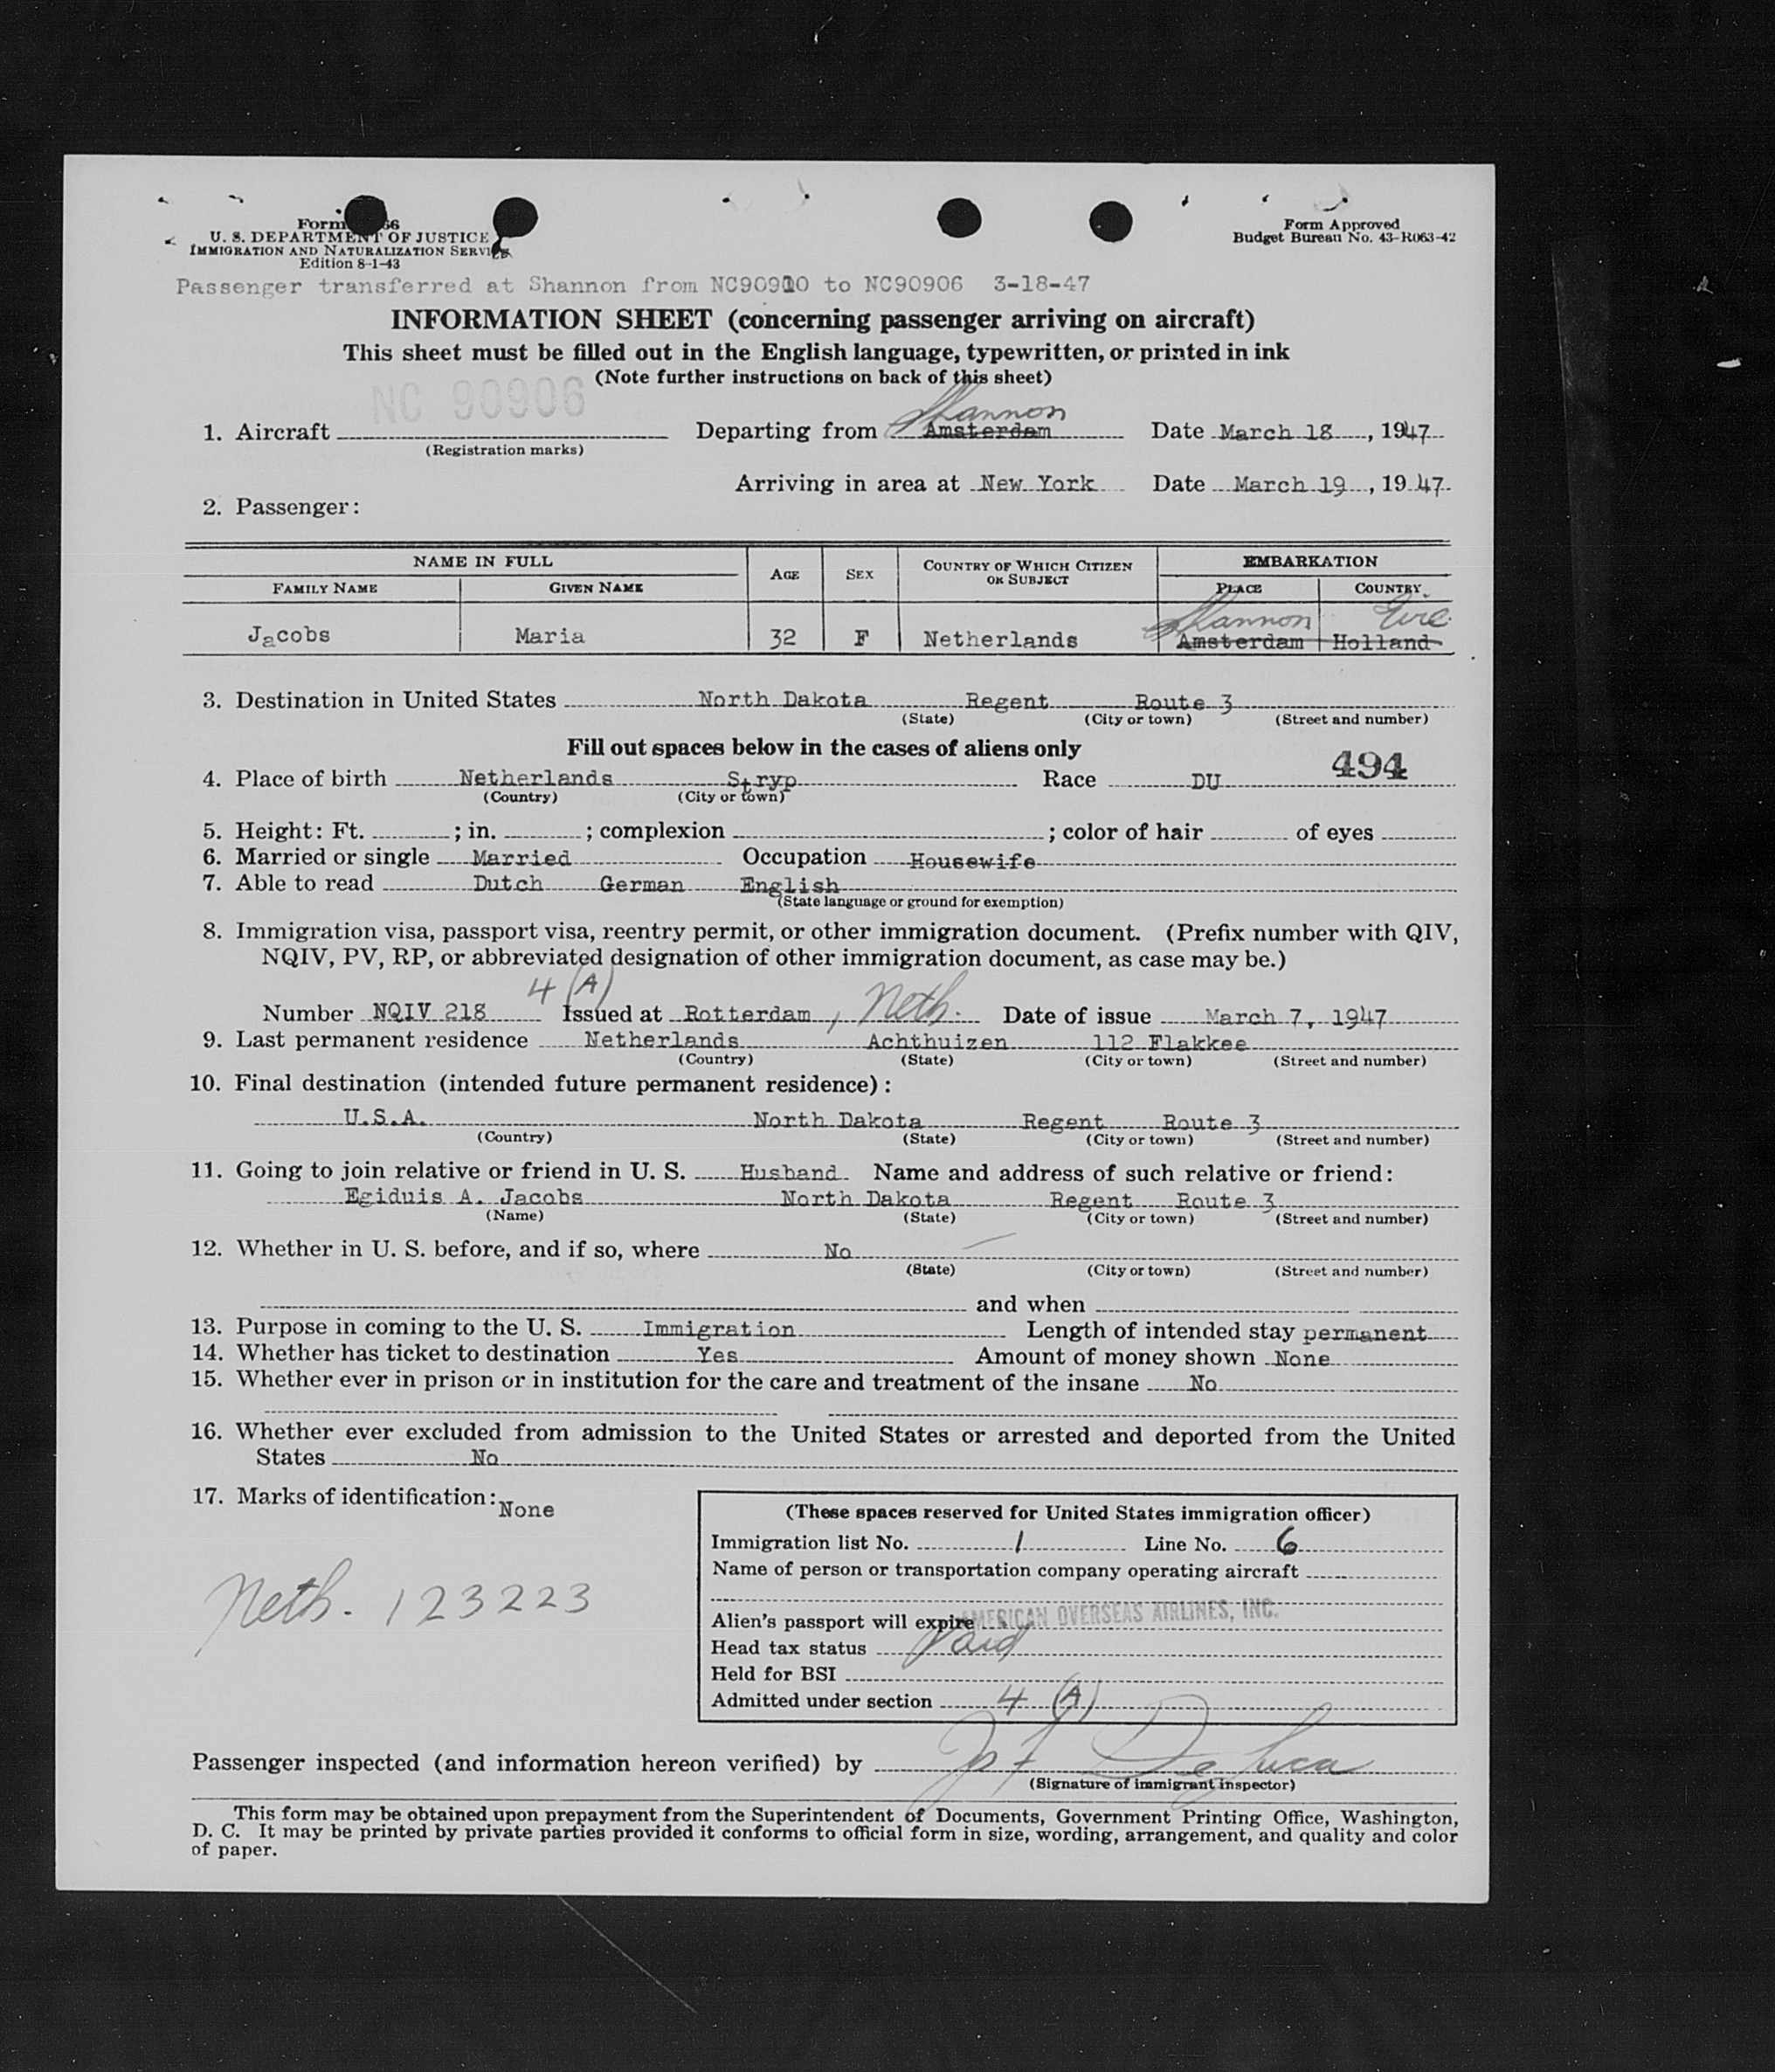 Form 66 Form Approved
U. S. DEPARTMENT OF JUSTICE Budget Bureau No. 43-R063-42
IMMIGRATION AND NATURALIZATION SERVICE
Edition 8-1-43
Passenger transferred at Shannon from NC90910 to NC90906 3-18-47
INFORMATION SHEET (concerning passenger arriving on aircraft)
This sheet must be filled out in the English language, typewritten, or printed in ink
(Note further instructions on back of this sheet)
NC 90906 Shannon
1. Aircraft Departing from Amsterdam Date March 18, 1947
(Registration marks)
Arriving in area at New York Date March 19, 1947
2. Passenger:
NAME IN FULL AGE SEX COUNTRY OF WHICH CITIZEN OR SUBJECT EMBARKATION
FAMILY NAME GIVEN NAME PLACE COUNTRY
Shannon Eire
Jacobs Maria 32 F Netherlands Amsterdam Holland
3. Destination in United States North Dakota Regent Route 3
(State) (City or town) (Street and number)
Fill out spaces below in the cases of aliens only
494
4. Place of birth Netherlands Stryp Race DU
(Country) (City or town)
5. Height: Ft. ; in. ; complexion ; color of hair of eyes
6. Married or single Married Occupation Housewife
7. Able to read Dutch German English
(State language or ground for exemption)
8. Immigration visa, passport visa, reentry permit, or other immigration document. (Prefix number with QIV,
NQIV, PV, RP, or abbreviated designation of other immigration document, as case may be.)
4 (A)
Number NQIV 218 Issued at Rotterdam, Neth. Date of issue March 7, 1947
9. Last permanent residence Netherlands Achthuizen 112 Flakkee
(Country) (State) (City or town) (Street and number)
10. Final destination (intended future permanent residence):
U.S.A. North Dakota Regent Route 3
(Country) (State) (City or town) (Street and number)
11. Going to join relative or friend in U. S. Husband Name and address of such relative or friend:
Egiduis A. Jacobs North Dakota Regent Route 3
(Name) (State) (City or town) (Street and number)
12. Whether in U. S. before, and if so, where No
(State) (City or town) (Street and number)
and when
13. Purpose in coming to the U. S. Immigration Length of intended stay permanent
14. Whether has ticket to destination Yes Amount of money shown None
15. Whether ever in prison or in institution for the care and treatment of the insane No
16. Whether ever excluded from admission to the United States or arrested and deported from the United
States No
17. Marks of identification: None
Neth. 123223
(These spaces reserved for United States immigration officer)
Immigration list No. 1 Line No. 6
Name of person or transportation company operating aircraft
AMERICAN OVERSEAS AIRLINES, INC.
Alien's passport will expire
Head tax status Paid
Held for BSI
Admitted under section 4 (A)
Passenger inspected (and information hereon verified) by De Luca
(Signature of immigrant inspector)
This form may be obtained upon prepayment from the Superintendent of Documents, Government Printing Office, Washington,
D. C. It may be printed by private parties provided it conforms to official form in size, wording, arrangement, and quality and color
of paper.